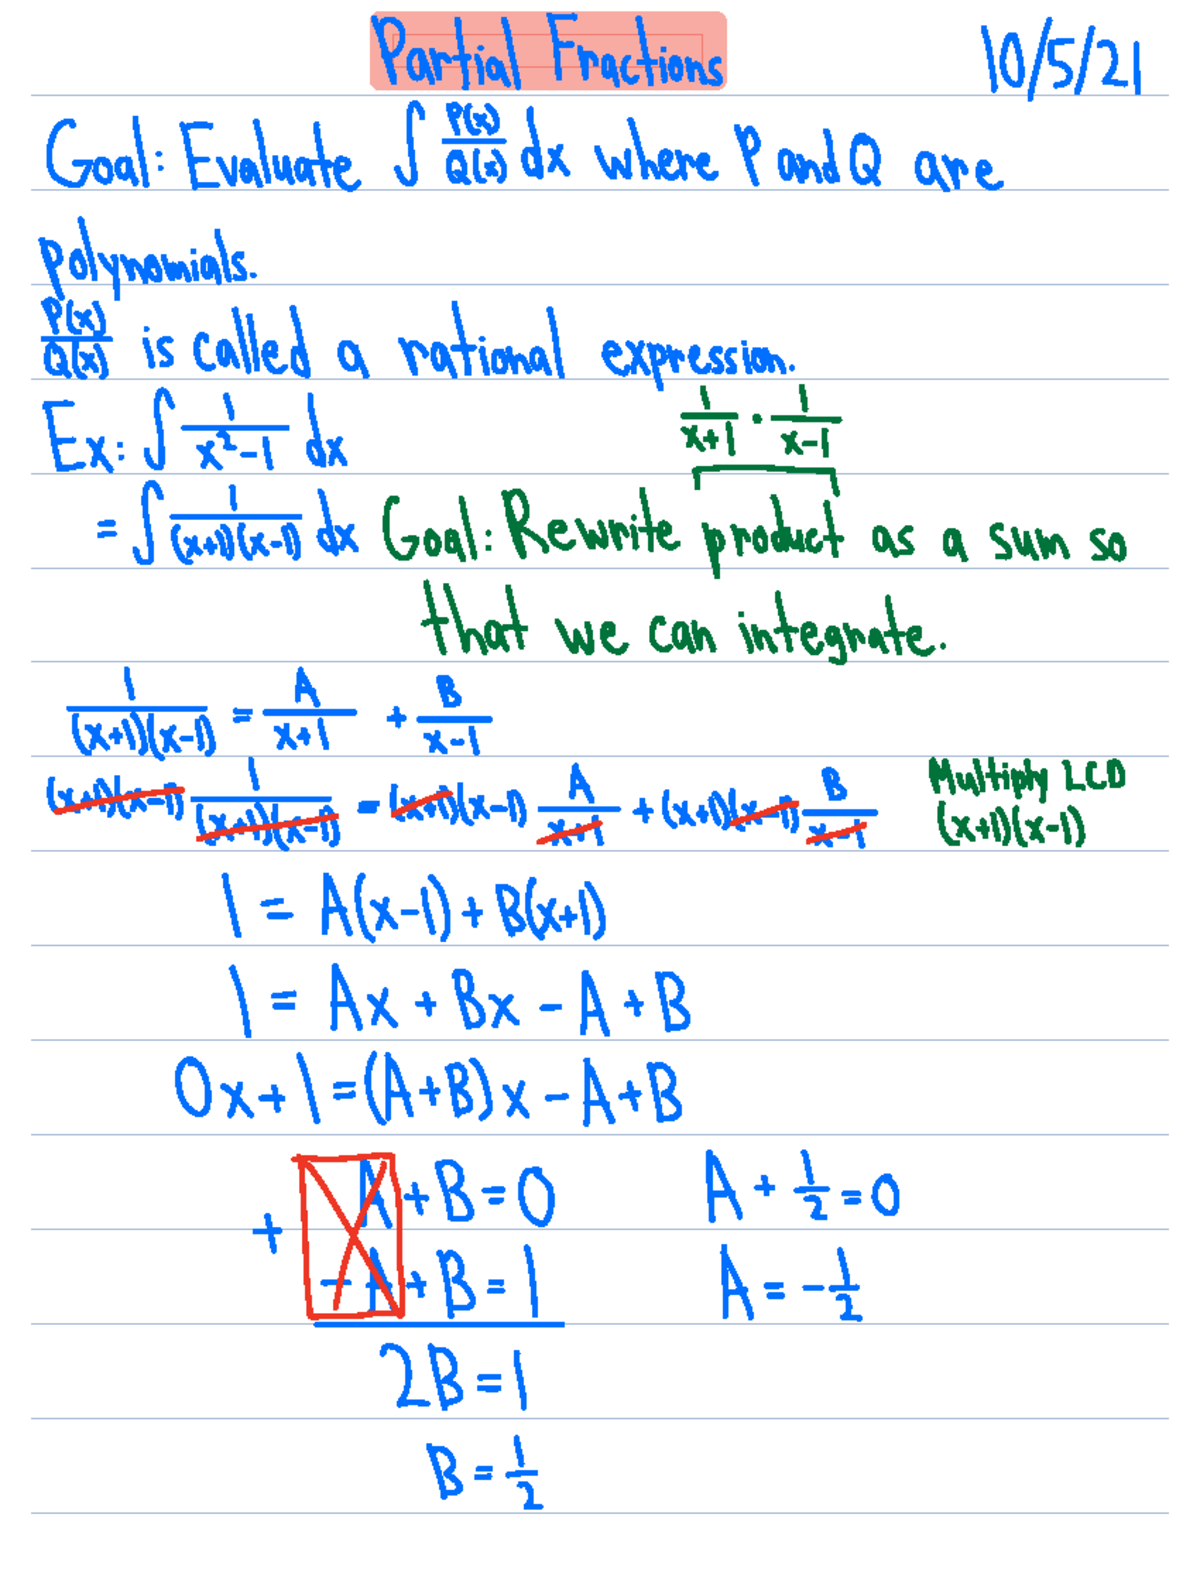 Partial Fractions 10/5/21
Goal: Evaluate ∫ P(x)/Q(x) dx where P and Q are
polynomials.
P(x)/Q(x) is called a rational expression.
Ex: ∫ 1/(x²-1) dx 1/(x+1) · 1/(x-1)
= ∫ 1/((x+1)(x-1)) dx Goal: Rewrite product as a sum so
that we can integrate.
1/((x+1)(x-1)) = A/(x+1) + B/(x-1)
(x+1)(x-1) 1/((x+1)(x-1)) = (x+1)(x-1) A/(x+1) + (x+1)(x-1) B/(x-1) Multiply LCD
(x+1)(x-1)
1 = A(x-1) + B(x+1)
1 = Ax + Bx - A + B
0x + 1 = (A+B)x - A + B
A + B = 0 A + 1/2 = 0
+ -A + B = 1 A = -1/2
2B = 1
B = 1/2